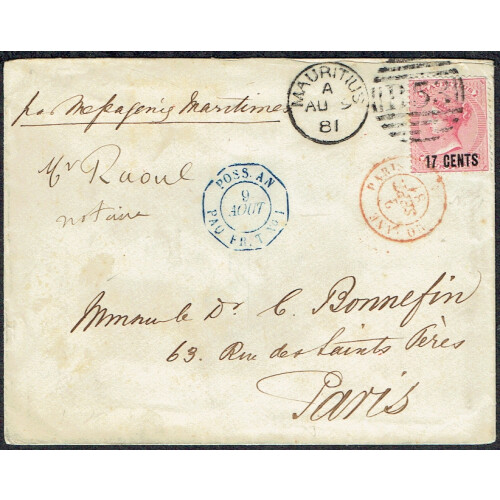 MAURITIUS
A
AU 9
81
B53
17 CENTS
par Messageries Maritimes
Mr Raoul
notaire
POSS. AN
9
AOUT
PAQ. FR. T No 1
PARIS
Dr. C. Bonnefin
63. Rue des Saints Pères
Paris